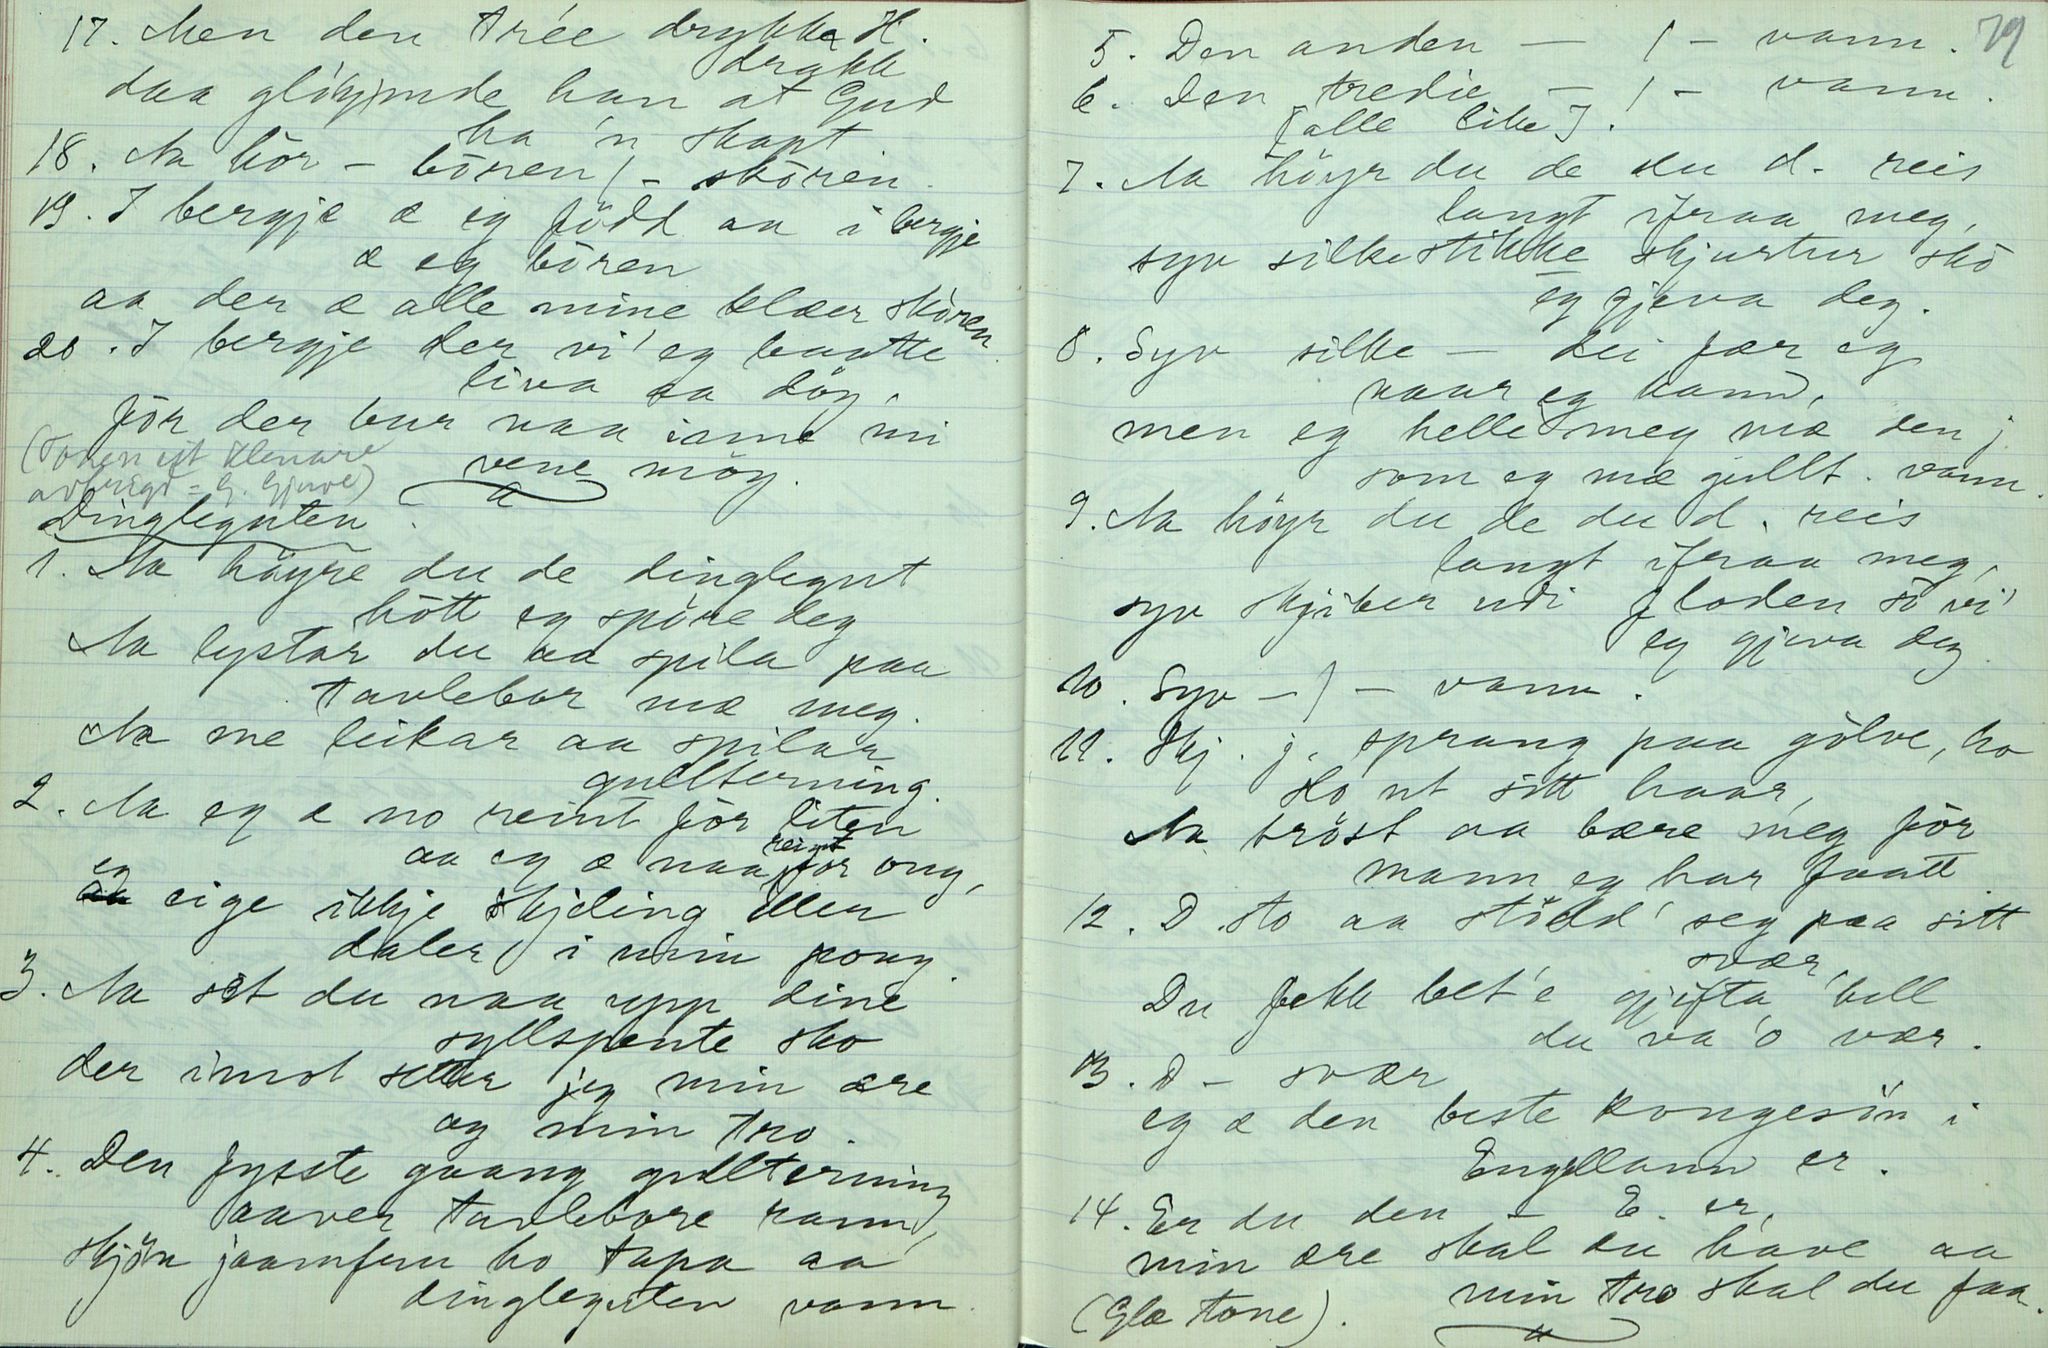 17. Men den tree drykken H.
drakk
daa gløymde han at Gud
ha 'n skapt
18. Aa hør - bören /- skören.
19. I bergje æ eg född aa i bergje
æ eg bören
aa der æ alle mine klær skören
20. I bergje der vi' eg baatte
liva aa döy,
för der bur naa inne mi
vene möy.
(Tonen eit klenare
avbrigd = G. Gjuve)
Dingleguten.
1. Aa høyre du de dinglegut
hött eg spöre deg
Aa lystar du aa spila paa
tavlebor mæ meg.
Aa me leikar aa spilar
gullterning.
2. Aa eg æ no reint för liten
aa eg æ naa reint för ong,
eg eige ikkje skjeling eller
daler i min pong.
3. Aa set du naa upp dine
syllspente sko
der imot setter jeg min ære
og min tro.
4. Den fysste gaang gullterning
aaver tavlebore rann,
skjön jaamfru ho tapa aa
dingleguten vann.
79
5. Den anden - /- vann.
6. Den tredie - /- vann.
[alle like].
7. Aa höyr du de du d. reis
langt ifraa meg,
syv silkestikke skjurtur sko
eg gjeva deg.
8. Syv silke - dei fær eg
naar eg kann,
men eg helle meg mæ den j.
som eg mæ gullt. vann.
9. Aa höyr du de du d. reis
langt ifraa meg,
syv skjiber udi floden så vi'
eg gjeva deg.
10. Syv -/- vann.
11. Skj. j. sprang paa gölve, ho
slo ut sitt haar,
Aa tröst aa bære meg för
mann eg har faatt.
12. D. sto aa stödd' seg paa sitt
svær,
Du fekk bet'e gjifta 'kell
du va 'o vær.
13. D - svær
eg æ den beste kongesön i
Engellann er.
14. Er du den - E. er,
min ære skal du have aa
min tro skal du faa.
(Glæ tone).